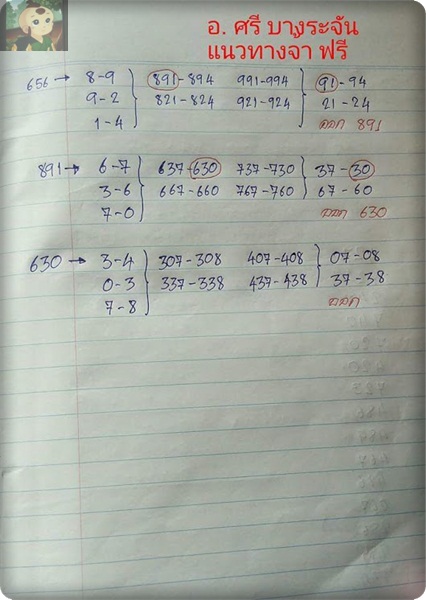 อ. ศรี บางระจัน
แนวทางจ้า ฟรี
656 → 8-9 891-894 991-994 91-94
9-2 821-824 921-924 21-24
1-4 ออก 891
891 → 6-7 637-630 737-730 37-30
3-6 667-660 767-760 67-60
7-0 ออก 630
630 → 3-4 307-308 407-408 07-08
0-3 337-338 437-438 37-38
7-8 ออก